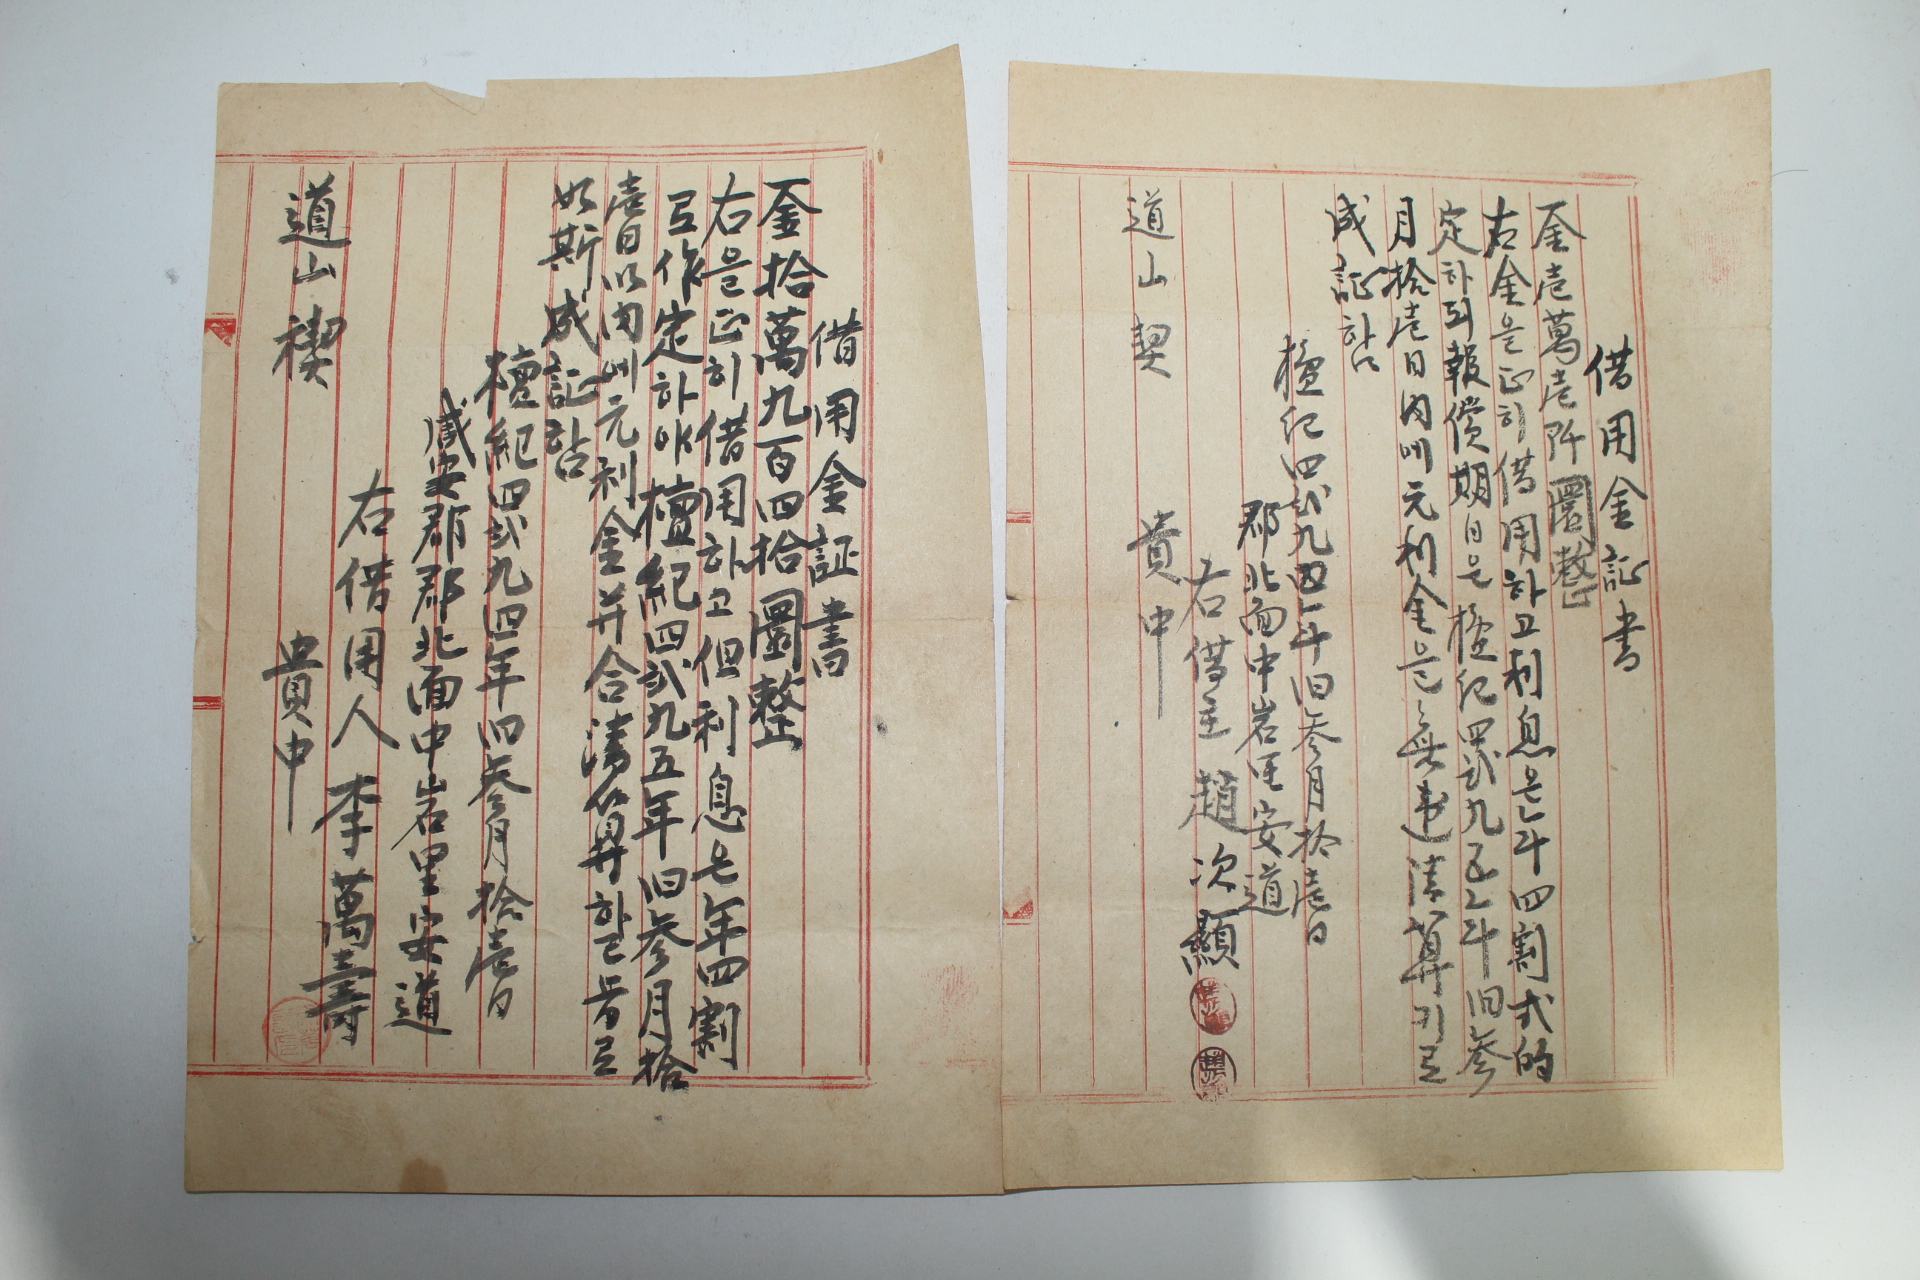 借用金証書
金壱萬壱阡圜整
右金을正히借用하고利息은年四割式的
定하되報償期日은檀紀四貳九五年旧參
月拾壱日內에元利金을無違淸算기로
成証하口
檀紀四貳九四年旧參月拾壱日
郡北面中岩里安道
右借主 趙次顯
道山契 貴中
借用金証書
金拾萬九百四拾圜整
右을正히借用하고但利息은年四割
로作定하야檀紀四貳九五年旧參月拾
壱日以內에元利金并合淸算하되爲로
如斯成証함
檀紀四貳九四年旧參月拾壱日
咸安郡郡北面中岩里安道
右借用人 李萬壽
道山稧 貴中